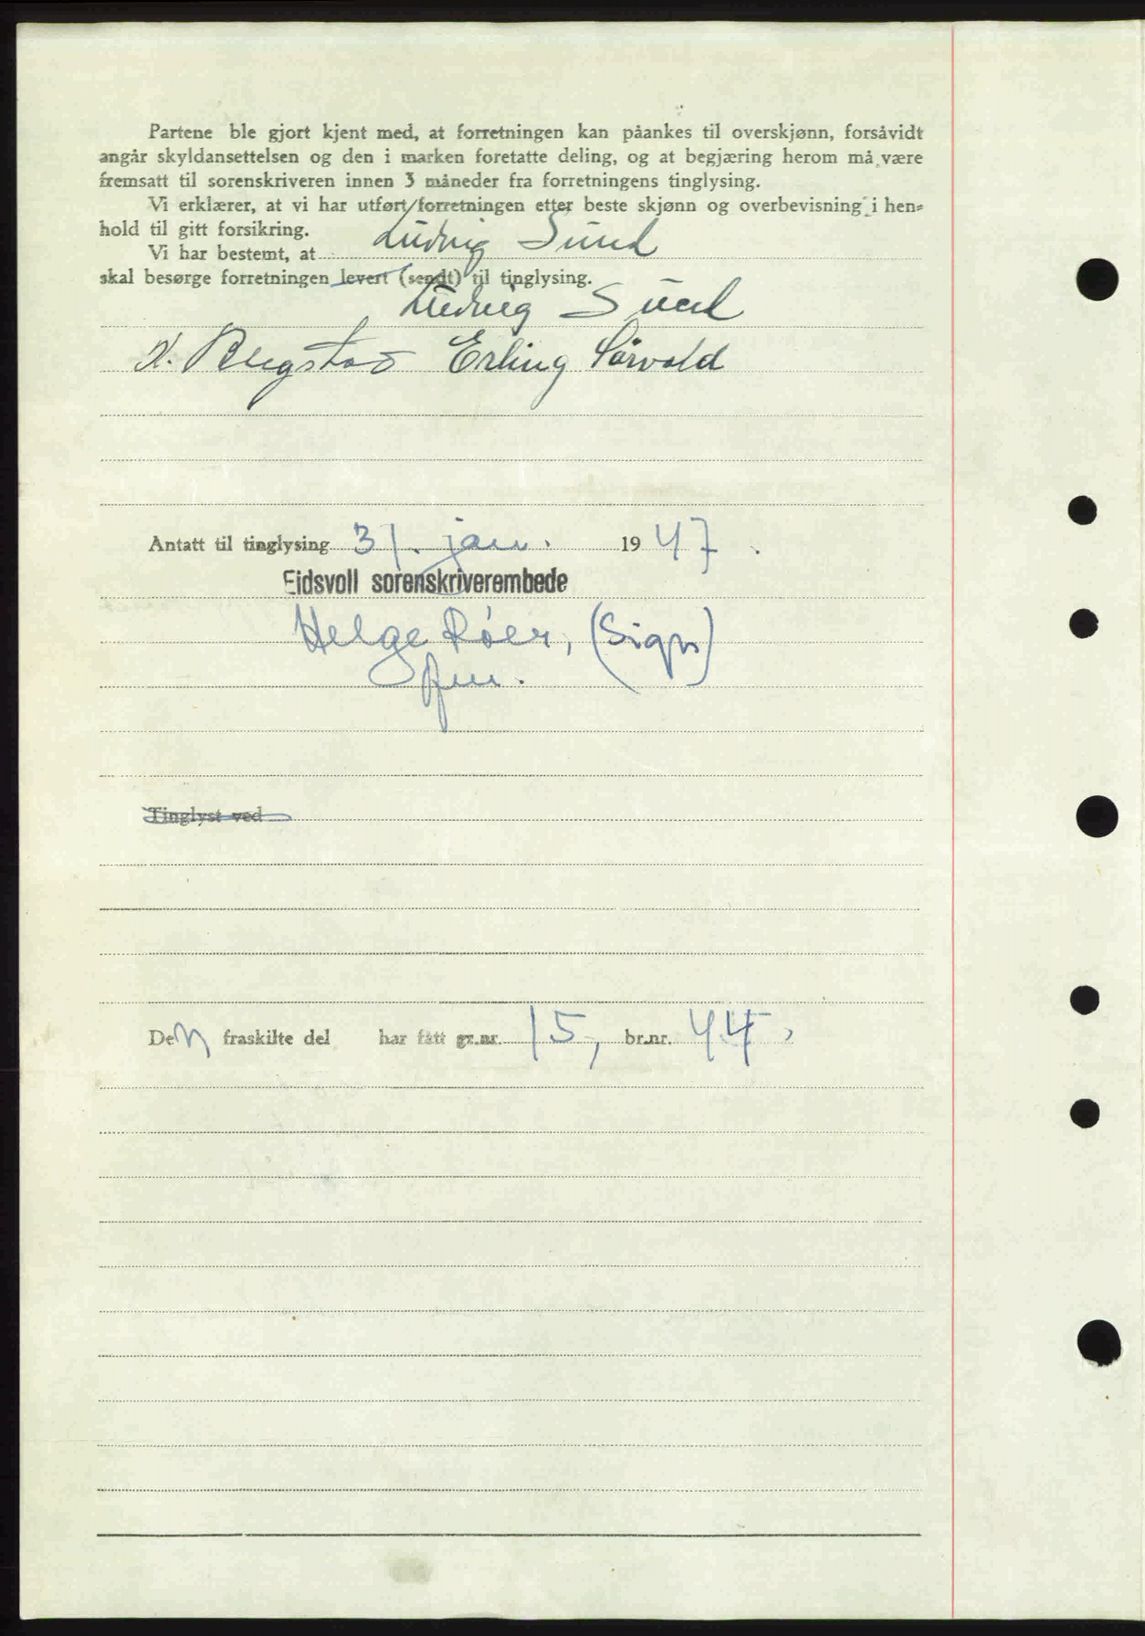 Partene ble gjort kjent med, at forretningen kan påankes til overskjønn, forsåvidt
angår skyldansettelsen og den i marken foretatte deling, og at begjæring herom må være
fremsatt til sorenskriveren innen 3 måneder fra forretningens tinglysing.
Vi erklærer, at vi har utført forretningen etter beste skjønn og overbevisning i hen-
hold til gitt forsikring.
Vi har bestemt, at Ludvig Sund
skal besørge forretningen levert (sendt) til tinglysing.
Ludvig Sund
K. Bugstad Erling Sørvold
Antatt til tinglysing 31. jan. 1947.
Eidsvoll sorenskriverembede
Helge Røer, (Sign)
fm.
Tinglyst ved
Den fraskilte del har fått gr.nr. 15, br.nr. 44,